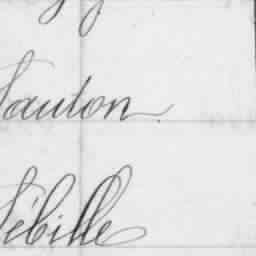 Sauton.
Sébille